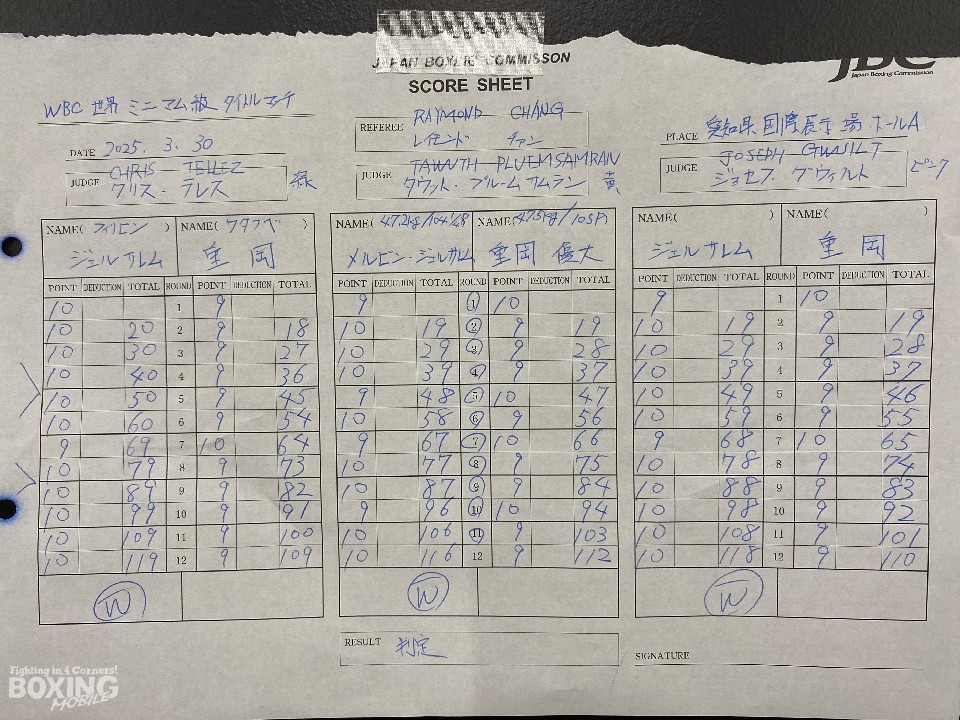 JAPAN BOXING COMMISSON
JBC
Japan Boxing Commission
SCORE SHEET
WBC 世界 ミニマム級 タイトルマッチ
DATE 2025. 3. 30
REFEREE RAYMOND CHANG
レイモンド チャン
PLACE 愛知県国際展示場ホールA
JUDGE CHRIS TELLEZ
クリス・テレス 緑
JUDGE TAWUTH PLUEMSAMRAN
タウット・プルームサムラン 黄
JUDGE JOSEPH GWILT
ジョセフ グウィルト ピンク
NAME(フィリピン) NAME(ワタナベ)
ジェルサレム 重岡
POINT DEDUCTION TOTAL ROUND POINT DEDUCTION TOTAL
10 1 9
10 20 2 9 18
10 30 3 9 27
10 40 4 9 36
10 50 5 9 45
10 60 6 9 54
9 69 7 10 64
10 79 8 9 73
10 89 9 9 82
10 99 10 9 91
10 109 11 9 100
10 119 12 9 109
W
NAME(47.2kg/104 1/8 NAME(47.5kg/105P)
メルビン・ジェルサレム 重岡 優大
POINT DEDUCTION TOTAL ROUND POINT DEDUCTION TOTAL
9 1 10
10 19 2 9 19
10 29 3 9 28
10 39 4 9 37
9 48 5 10 47
10 58 6 9 56
9 67 7 10 66
10 77 8 9 75
10 87 9 9 84
9 96 10 10 94
10 106 11 9 103
10 116 12 9 112
W
NAME( ) NAME( )
ジェルサレム 重岡
POINT DEDUCTION TOTAL ROUND POINT DEDUCTION TOTAL
9 1 10
10 19 2 9 19
10 29 3 9 28
10 39 4 9 37
10 49 5 9 46
10 59 6 9 55
9 68 7 10 65
10 78 8 9 74
10 88 9 9 83
10 98 10 9 92
10 108 11 9 101
10 118 12 9 110
W
RESULT 判定
SIGNATURE
Fighting in 4 Corners!
BOXING
MOBILE